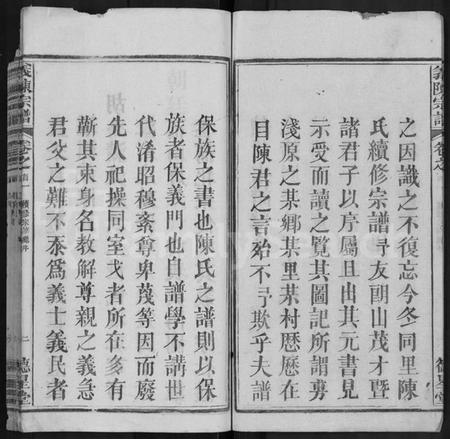 義陳宗譜 卷之
之因識之不復忘今冬同里陳
氏續修宗譜予友朗山茂才暨
諸君子以序屬且出其元書見
示受而讀之覽其圖記所謂
淺原之某鄉某里某村歷歷在
目陳君之言殆不予欺乎夫譜
德星堂
保族之書也陳氏之譜則以保
族者保義門也自譜學不講世
代淆昭穆紊尊卑蔑等因而廢
先人祀操同室戈者所在多有
蘄其束身名教解尊親之義急
君父之難不忝為義士義民者
義陳宗譜 卷之首
二
德星堂